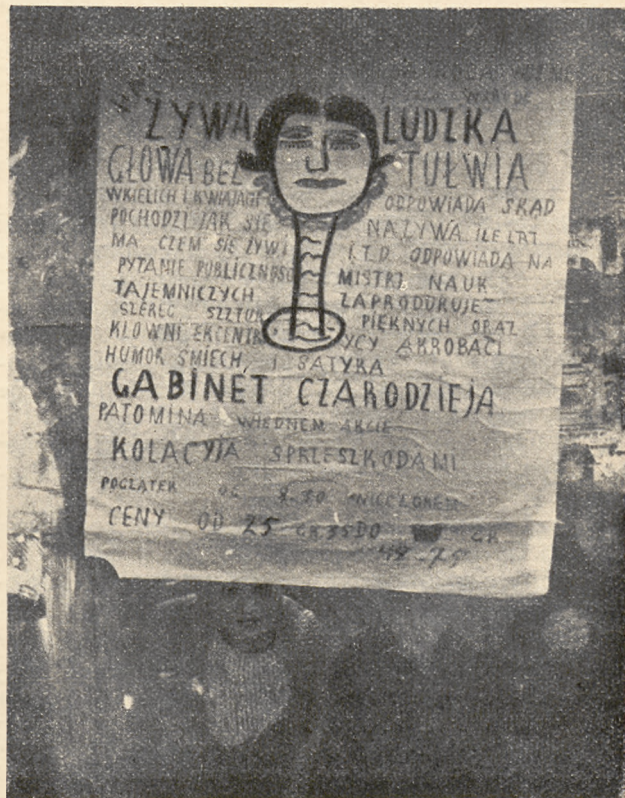 ŻYWA LUDZKA
GŁOWA BEZ TUŁWIA
WKIELICH I KWIATACH ODPOWIADA SKĄD
POCHODZI JAK SIE NAZYWA ILE LAT
MA CZEM SIE ŻYWI I.T.D ODPOWIADA NA
PYTANIE PUBLICZNOSC MISTRZ NAUK
TAJEMNICZYCH ZAPRODUKUJE
SZEREG SZTUK PIĘKNYCH ORAZ
KLOWNI EKCENTRYCY AKROBACI
HUMOR ŚMIECH, I SATYRA
GABINET CZARODZIEJA
PATOMINA WIEDNEM AKCIE
KOLACYJA SPRZESZKODAMI
POCZĄTEK OG 8-30 WIECZOREM
CENY OD 25 GR 35 DO GR